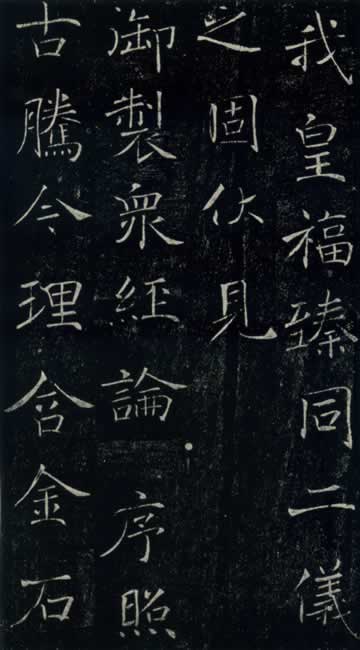 我皇福臻同二儀
之固伏見
御製衆經論序照
古騰今理含金石